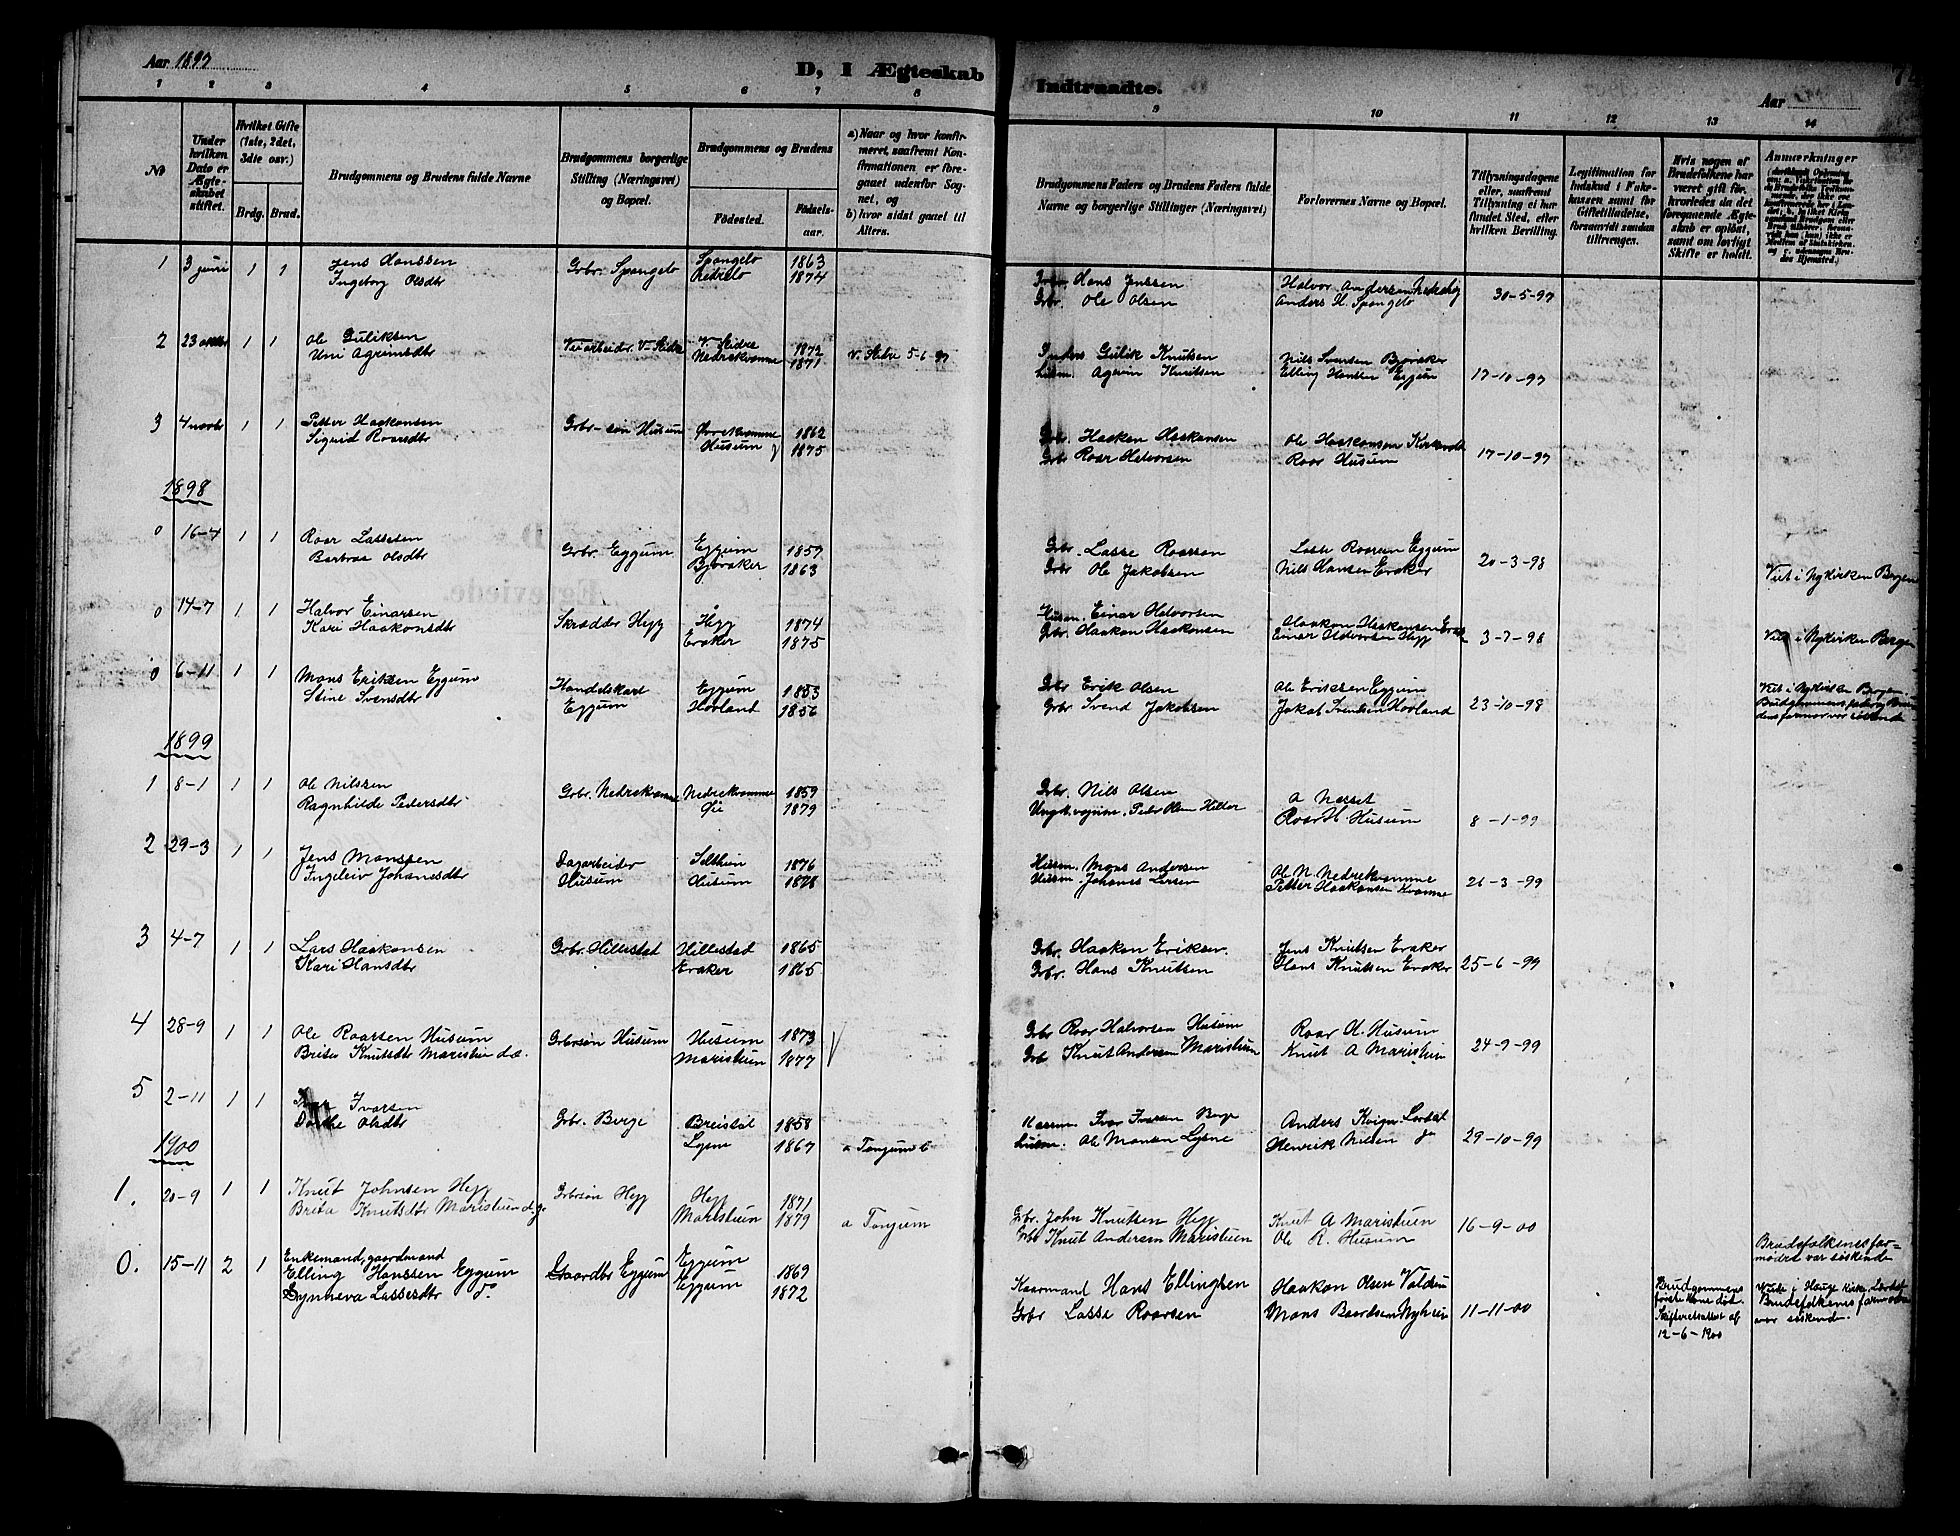 Aar 1897
D, I Ægteskab
Indtraadte.
Aar
1 2 3 4 5 6 7 8 9 10 11 12 13 14
No
Under hvilken Dato er Ægteskabet stiftet.
Hvilket Gifte (1ste, 2det, 3dte osv.)
Brdg. Brud.
Brudgommens og Brudens fulde Navne
Brudgommens borgerlige Stilling (Næringsvei) og Bopæl.
Brudgommens og Brudens
Fødested. Fødselsaar.
a) Naar og hvor konfirmeret, saafremt Konfirmationen er foregaaet udenfor Sognet, og
b) hvor sidst gaaet til Alters.
Brudgommens Faders og Brudens Faders fulde Navne og borgerlige Stillinger (Næringsvei)
Forlovernes Navne og Bopæl.
Tillysningsdagene eller, saafremt Tillysning ei har fundet Sted, efter hvilken Bevilling.
Legitimation for Indskud i Enkekassen samt for Giftetilladelse, forsaavidt saadan tiltrenges.
Hvis nogen af Brudefolkene har været gift før, hvorledes da det foregaaende Ægteskab er opløst, samt om lovligt Skifte er holdt.
Anmærkninger
1 3 juni 1 1 Jens Hanssen Grbr. Spangelo Spangelo 1863 Grbr Hans Jenssen Halvor Andersen 30-5-97
Ingeborg Olsdtr 1874 Grbr. Ole Olsen Anders H. Spangelo
2 23 oktbr 1 1 Ole Guliksen Veiarbeidr. V-Slidre V. Slidre 1872 V. Slidre 5-6-97 Gulik Knutsen Nils Svensen Bjøraker
Uni Agrimsdtr Nedrekvamme 1871 husm. Agrim Knutsen Elling Hansen Eggum 17-10-97
3 4 novbr 1 1 Petter Haakonsen Grbr-søn Husum Øvrekvamme 1862 Grbr. Haakon Haakonsen Ole Haakonsen
Sigrid Roarsdtr Husum 1875 Grbr Roar Halvorsen Roar Husum 17-10-97
1898
0 16-4 1 1 Roar Lassesen Grbr. Eggum Eggum 1857 Grbr. Lasse Roarson Lasse Roarsen Eggum 20-3-98
Barbraa Olsdtr Bjøraker 1863 Grbr Ole Jakobsen Nils Hansen Eraker Viet i Nykirken Bergen
0 14-7 1 1 Halvor Einarsen Skrædder Hegg Hegg 1874 Husm. Einar Halvorsen Haakon Haakonsen Erak
Kari Haakonsdtr Eraker 1875 Grbr. Haakon Haakonsen Einar Halvorsen Hegg 3-7-98 Viet i Nykirken Bergen
0 6-11 1 1 Mons Eriksen Eggum Handelskarl Eggum 1853 Grbr Erik Olsen Ole Eriksen Eggum Viet i Nykirken Bergen.
Stine Svensdtr Eggum Hovland 1856 Grbr Svend Jakobsen Jakob Svendsen Hovland 23-10-98
1899
1 8-1 1 1 Ole Nilssen Grbr. Nedrekvamme Nedrekvamme 1859 Grbr. Nils Olsen A Næsset
Ragnhilde Pedersdtr Øie 1879 Roar H. Husum 8-1-99
2 29-3 1 1 Jens Monssen Dagarbeider Selthun 1876 Husm. Mons Andersen Ole N. Nedrekvamme
Ingeleiv Johanesdtr Husum Husum 1878 Husm. Johanes Larsen Petter Haakonsen Kvamme 26-3-99
3 4-7 1 1 Lars Haakonsen Grbr. Hillestad Hillestad 1865 Grbr. Haakon Eriksen. Jens Knutsen Eraker
Kari Hansdtr Eraker 1865 Grbr. Hans Knutsen Hans Knutsen Eraker 25-6-99
4 28-9 1 1 Ole Roarsen Husum Grbrsøn Husum Husum 1873 Grbr Roar Halvorsen Husum Roar H. Husum
Brita Knutsdtr Maristuen d.æ. Maristuen 1877 V Grbr Knut Andersen Maristuen Knut A Maristuen 24-9-99
5 2-11 1 1 Ivarsen Grbr. Berge Breistøl 1858 Husm. Ivar Ivarsen Berge Anders Lærdal
Dorthe Olsdtr Lysne 1867 a Tønjum husm. Ole Monsen Lysne Henrik Nilsen do 29-10-99
1900
1. 20-9 1 1 Knut Johnsen Hegg Grbrsøn Hegg Hegg 1871 Grbr. John Knutsen Hegg Knut A Maristuen 16-9-00
Brita Knutsdtr Maristuen d.y. Maristuen 1879 a Tønjum Grbr Knut Andersen Maristuen Ole R. Husum
0. 15-11 2 1 Enkemand, gaardmand
Elling Hanssen Eggum Gaardbr Eggum Eggum 1869 Kaarmand Hans Ellingsen Haakon Olsen
Synneva Lassesdtr do. Eggum 1872 Grbr Lasse Roarsen Mons Baardsen 11-11-00
Brudgommens første kone død. Skifteretsattest af 12-6-1900
Brudefolkenes farmødre var søskende